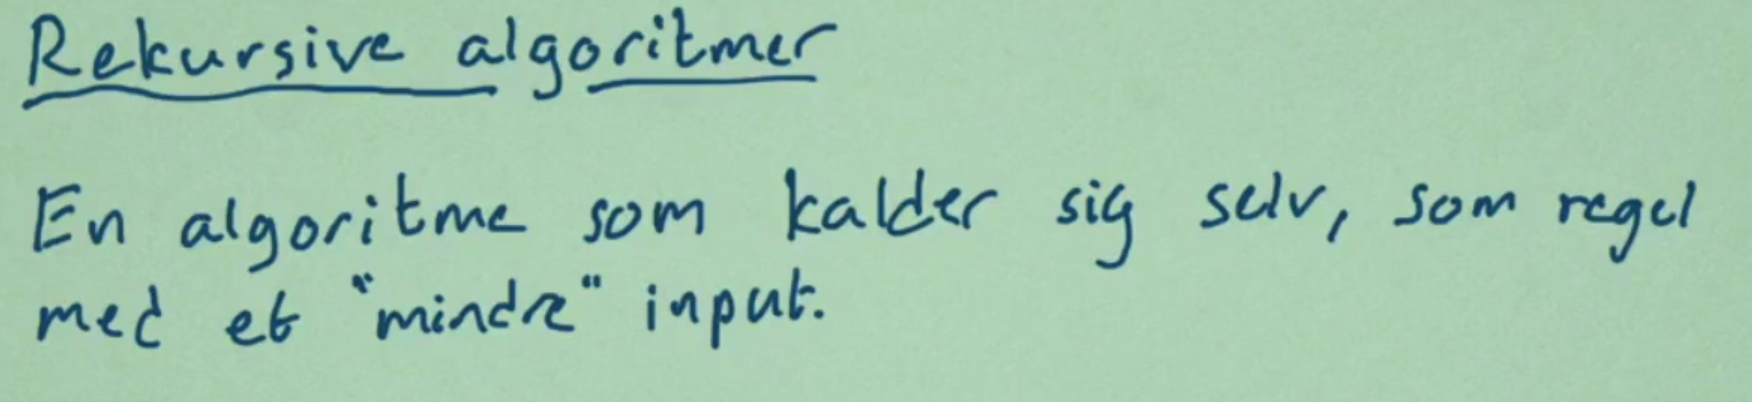 Rekursive algoritmer
En algoritme som kalder sig selv, som regel
med et "mindre" input.